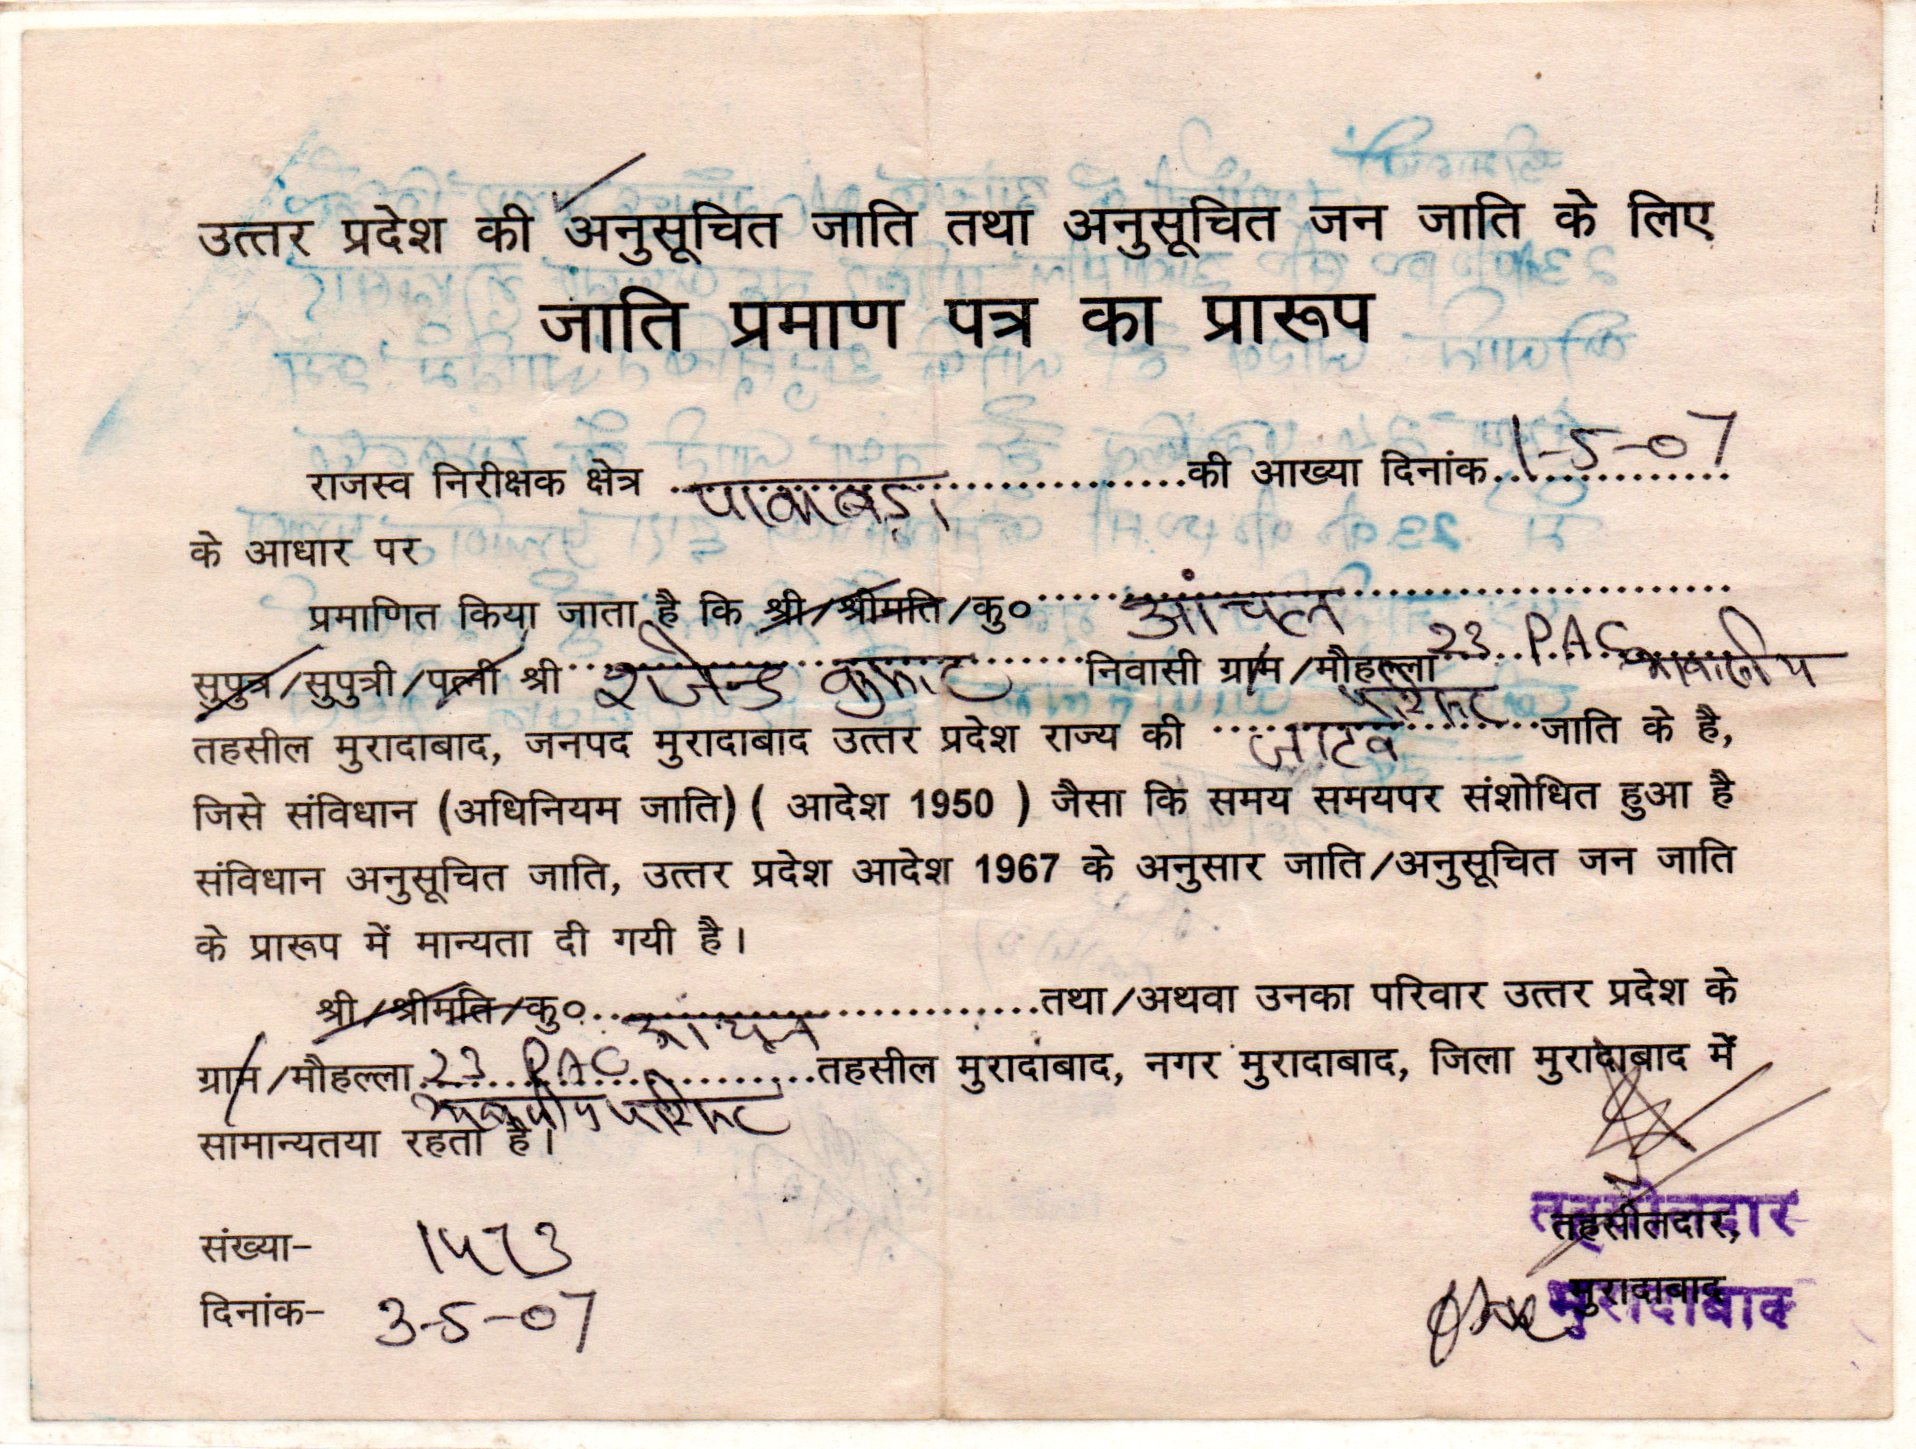 उत्तर प्रदेश की अनुसूचित जाति तथा अनुसूचित जन जाति के लिए
जाति प्रमाण पत्र का प्रारूप
राजस्व निरीक्षक क्षेत्र ........ पाकबडा ........की आख्या दिनांक.. 1-5-07
के आधार पर
प्रमाणित किया जाता है कि श्री/श्रीमति/कु० आंचल
सुपुत्र/सुपुत्री/पत्नी श्री राजेन्द्र कुमार निवासी ग्राम/मौहल्ला 23 P.A.C आवासीय
परिसर
तहसील मुरादाबाद, जनपद मुरादाबाद उत्तर प्रदेश राज्य की जाटव जाति के है,
जिसे संविधान (अधिनियम जाति) ( आदेश 1950 ) जैसा कि समय समयपर संशोधित हुआ है
संविधान अनुसूचित जाति, उत्तर प्रदेश आदेश 1967 के अनुसार जाति/अनुसूचित जन जाति
के प्रारूप में मान्यता दी गयी है।
श्री/श्रीमति/कु० आंचल तथा/अथवा उनका परिवार उत्तर प्रदेश के
ग्राम/मौहल्ला 23 PAC तहसील मुरादाबाद, नगर मुरादाबाद, जिला मुरादाबाद में
आवासीय परिसर
सामान्यतया रहता है।
संख्या- 1473
दिनांक- 3-5-07
तहसीलदार
तहसीलदार,
मुरादाबाद
मुरादाबाद